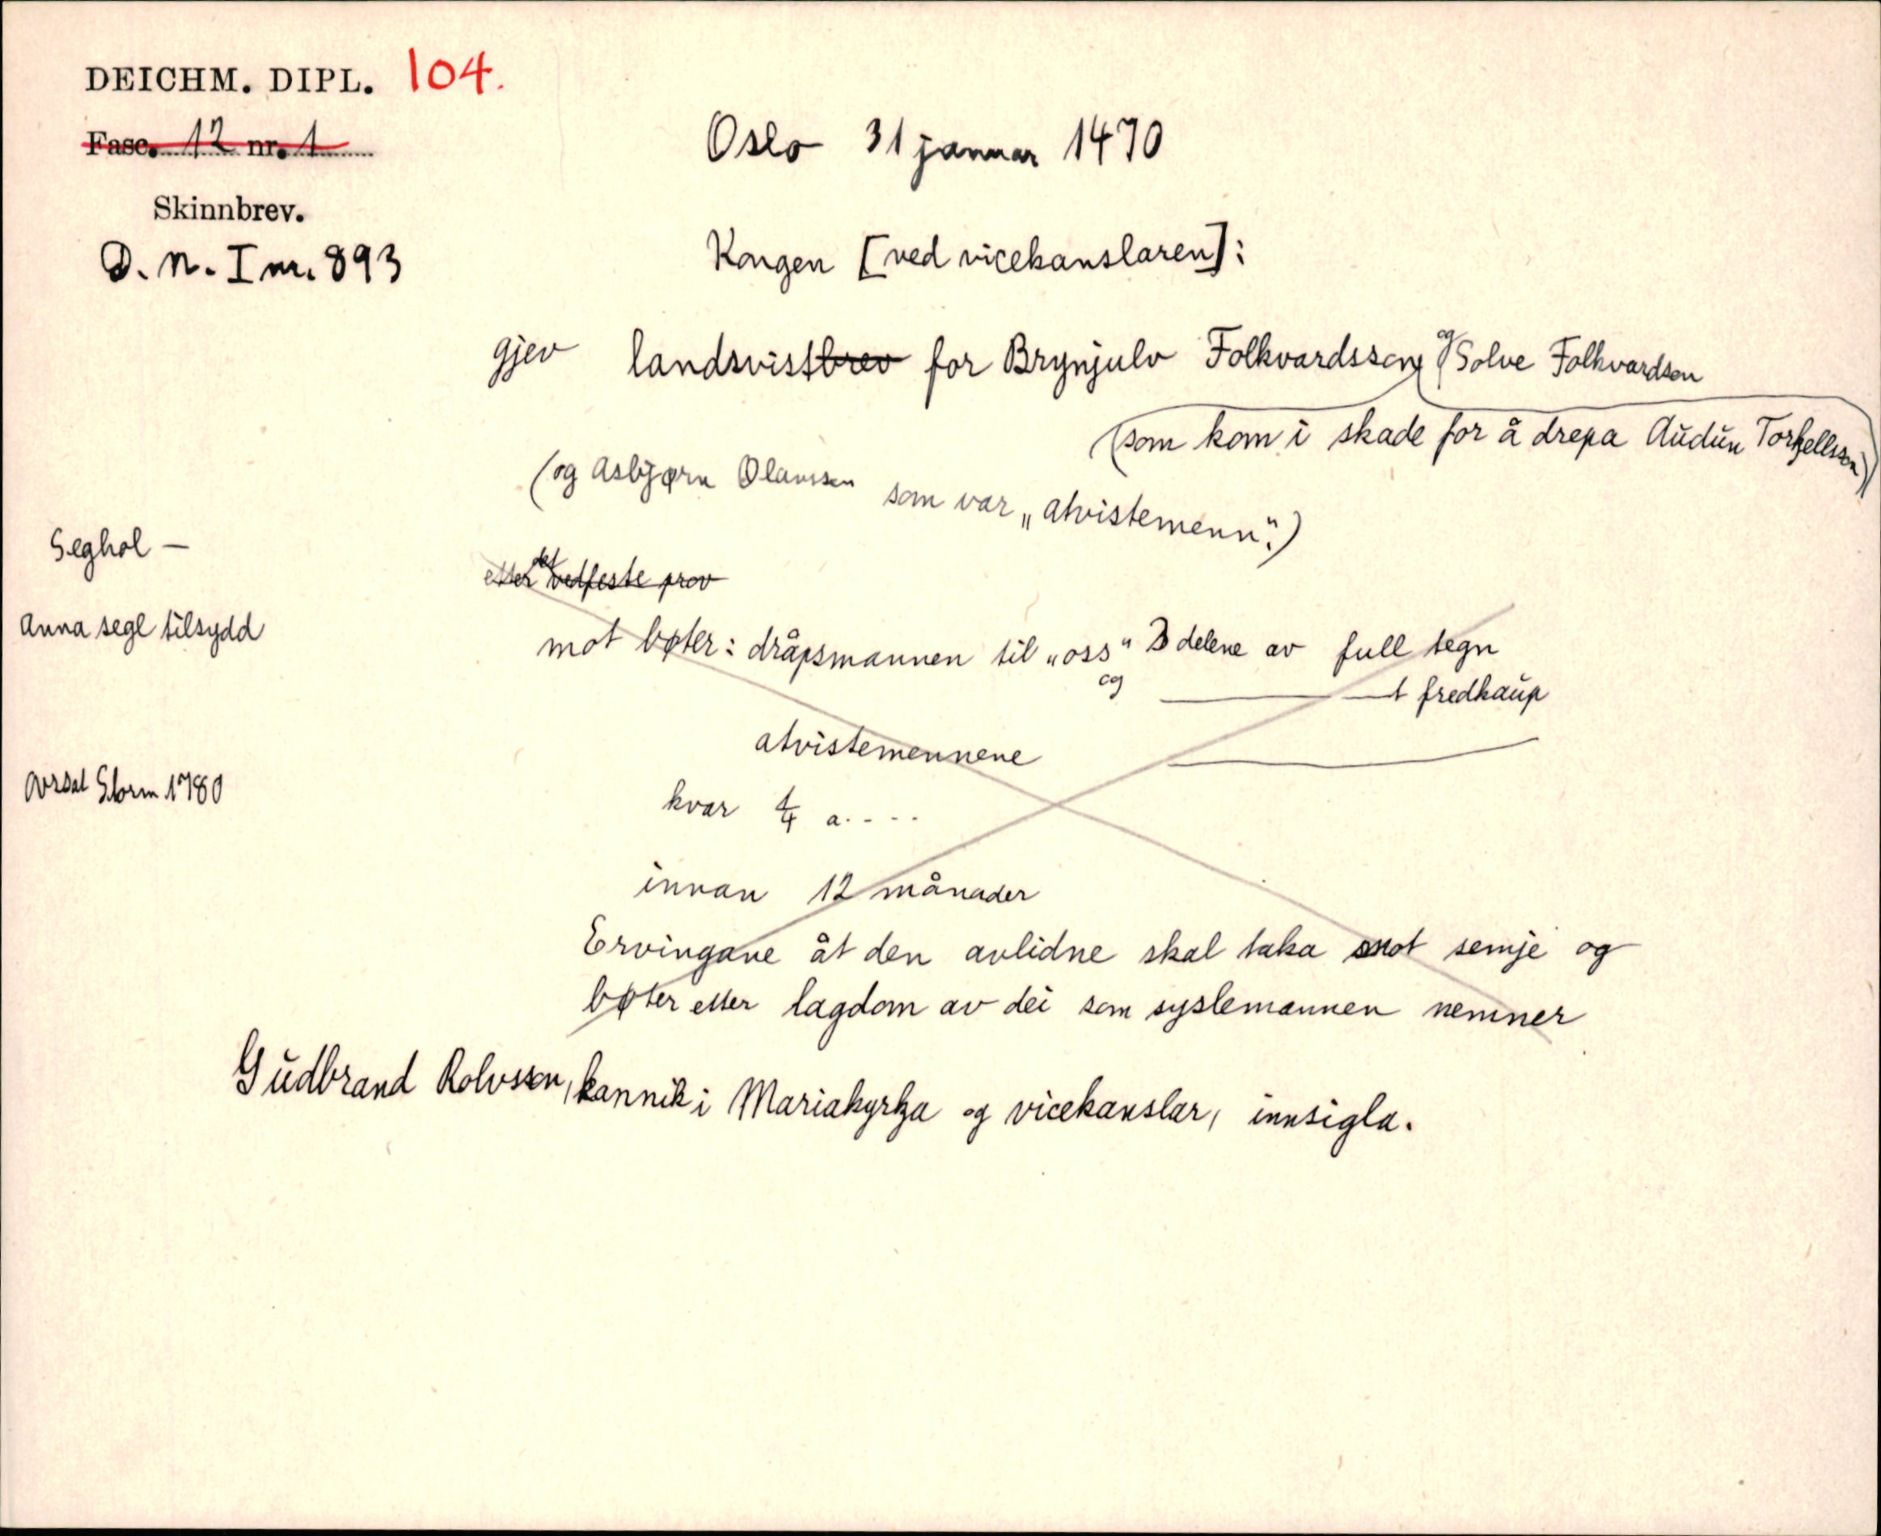 DEICHM. DIPL. 104.
Fasc. 12 nr. 1
Skinnbrev.
D. N. I nr. 893
Oslo 31 januar 1470
Kongen [ved vicekanslaren]:
gjev landsvistbrev for Brynjulv Folkvardsson og Solve Folkvardson
(som kom i skade for å drepa Audun Torkjellsson)
(og Asbjørn Olavsson som var „atvistemenn".)
Seghol —
etter det vedfeste prov
Anna segl tilsydd
mot bøter: dråpsmannen til „oss" delene av full tegn
og ———— t fredkaup
atvistemennene ————
Avrset Storm 1780
kvar 1/4 a. - - -
innan 12 månader
Ervingane åt den avlidne skal taka mot semje og
bøter etter lagdom av dei som syslemannen nemner
Gudbrand Rolvsson, kannik i Mariakyrkja og vicekanslar, innsigla.